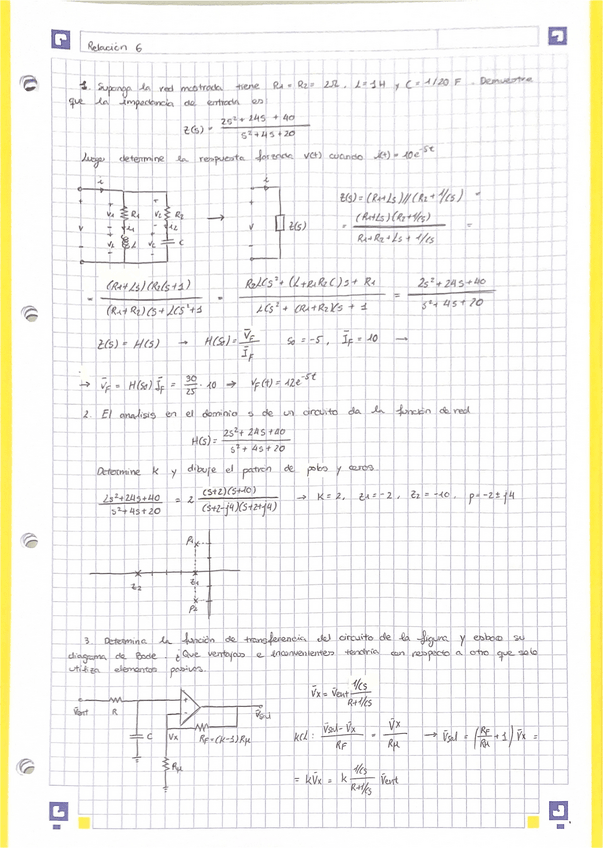 Relación 6
1. Suponga la red mostrada tiene R1 = R2 = 2Ω, L = 1H y C = 1/20 F. Demuestre
que la impedancia de entrada es:
Z(s) = (2s² + 24s + 40) / (s² + 4s + 20)
Luego determine la respuesta forzada v(t) cuando i(t) = 10e^-5t
i i
+ + + + 
V V1 R1 V2 R2 → V Z(s)
L C
Z(s) = (R1+Ls)//(R2+1/Cs) =
= (R1+Ls)(R2+1/Cs) / (R1+R2+Ls+1/Cs) =
= (R1+Ls)(R2Cs+1) / ((R1+R2)Cs+LCs²+1) = (R2LCs²+(L+R1R2C)s+R1) / (LCs²+(R1+R2)Cs+1) = (2s²+24s+40) / (s²+4s+20)
Z(s) = H(s) → H(s0) = V̄F / ĪF s0 = -5, ĪF = 10 →
→ V̄F = H(s0) ĪF = 30/25 · 10 → vF(t) = 12e^-5t
2. El analisis en el dominio s de un circuito da la función de red
H(s) = (2s² + 24s + 40) / (s² + 4s + 20)
Determine K y dibuje el patrón de polos y ceros.
(2s²+24s+40) / (s²+4s+20) = 2 (s+2)(s+10) / (s+2-j4)(s+2+j4) → K = 2, Z1 = -2, Z2 = -10, p = -2 ± j4
P1
Z2 Z1
P2
3. Determina la función de transferencia del circuito de la figura y esboce su
diagrama de Bode. ¿Que ventajas e inconvenientes tendría con respecto a otro que solo
utiliza elementos pasivos.
V̄ent R V̄sal
C Vx RF=(k-1)Rμ
Rμ
V̄x = V̄ent (1/Cs) / (R+1/Cs)
KCL: (V̄sal - V̄x) / RF = V̄x / Rμ → V̄sal = (RF/Rμ + 1) V̄x =
= kV̄x = k (1/Cs) / (R+1/Cs) V̄ent